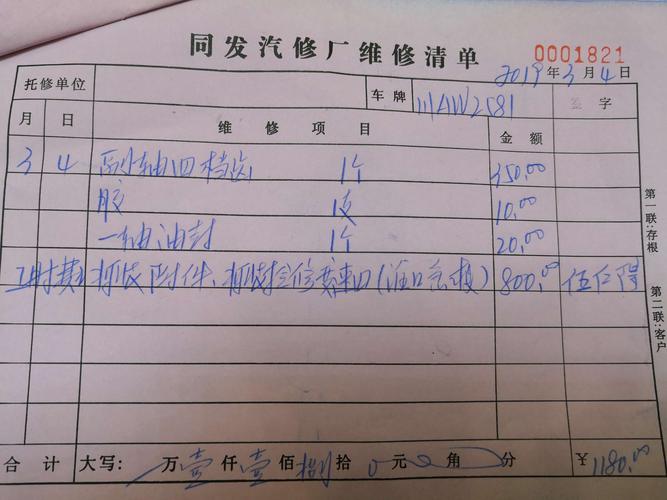 同发汽修厂维修清单
0001821
2019年3月4日
托修单位 车牌 川AW2581 签字
月 日 维修项目 金额
3 4 副轴四档齿 1个 350.00
胶 1支 10.00
一轴油封 1个 20.00
工时费: 拆装附件、拆装检修变速 800.00
合计 大写: 万壹仟壹佰捌拾0元0角分 ¥1180.00
第一联:存根
第二联:客户